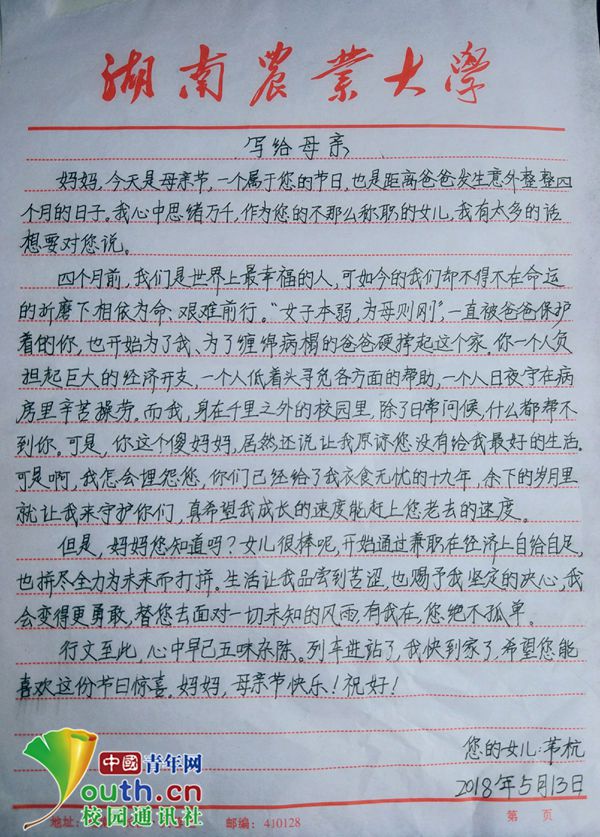 湖南農業大學
写给母亲
妈妈，今天是母亲节，一个属于您的节日，也是距离爸爸发生意外整整四
个月的日子。我心中思绪万千，作为您的不那么称职的女儿，我有太多的话
想要对您说。
四个月前，我们是世界上最幸福的人，可如今的我们却不得不在命运
的折磨下相依为命、艰难前行。“女子本弱，为母则刚”，一直被爸爸保护
着的你，也开始为了我、为了缠绵病榻的爸爸硬撑起这个家。你一个人负
担起巨大的经济开支，一个人低着头寻觅各方面的帮助，一个人日夜守在病
房里辛苦操劳。而我，身在千里之外的校园里，除了日常问候，什么都帮不
到你。可是，你这个傻妈妈，居然还说让我原谅您没有给我最好的生活。
可是啊，我怎会埋怨您，你们已经给了我衣食无忧的十九年，余下的岁月里
就让我来守护你们，真希望我成长的速度能赶上您老去的速度。
但是，妈妈您知道吗？女儿很棒呢，开始通过兼职在经济上自给自足，
也拼尽全力为未来而打拼。生活让我品尝到苦涩，也赐予我坚定的决心，我
会变得更勇敢，替您去面对一切未知的风雨，有我在，您绝不孤单。
行文至此，心中早已五味杂陈。列车进站了，我快到家了，希望您能
喜欢这份节日惊喜。妈妈，母亲节快乐！祝好！
您的女儿：苇杭
2018年5月13日
中國青年网
Youth.cn
校园通讯社
地址：
邮编：410128
第 页